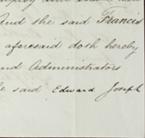 And the said Francis
aforesaid doth hereby
and Administrators
said Edward Joseph